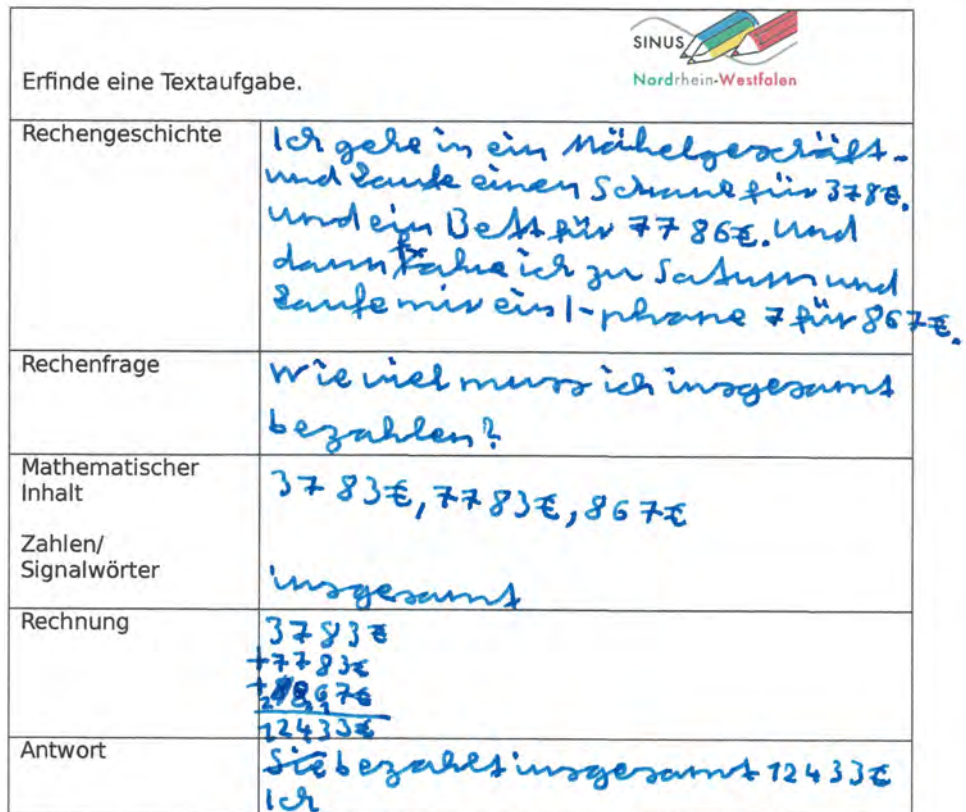 SINUS
Nordrhein-Westfalen
Erfinde eine Textaufgabe.
Rechengeschichte
Ich gehe in ein Möbelgeschäft.
und kaufe einen Schrank für 378€.
und ein Bett für 7786€. Und
dann fahre ich zu Saturn und
kaufe mir ein I-phone 7 für 867€.
Rechenfrage
Wie viel muss ich insgesamt
bezahlen?
Mathematischer
Inhalt
3783€, 7783€, 867€
Zahlen/
Signalwörter
insgesamt
Rechnung
3783€
+7783€
+ 867€
12433€
Antwort
Sie bezahlt insgesamt 12433€
Ich